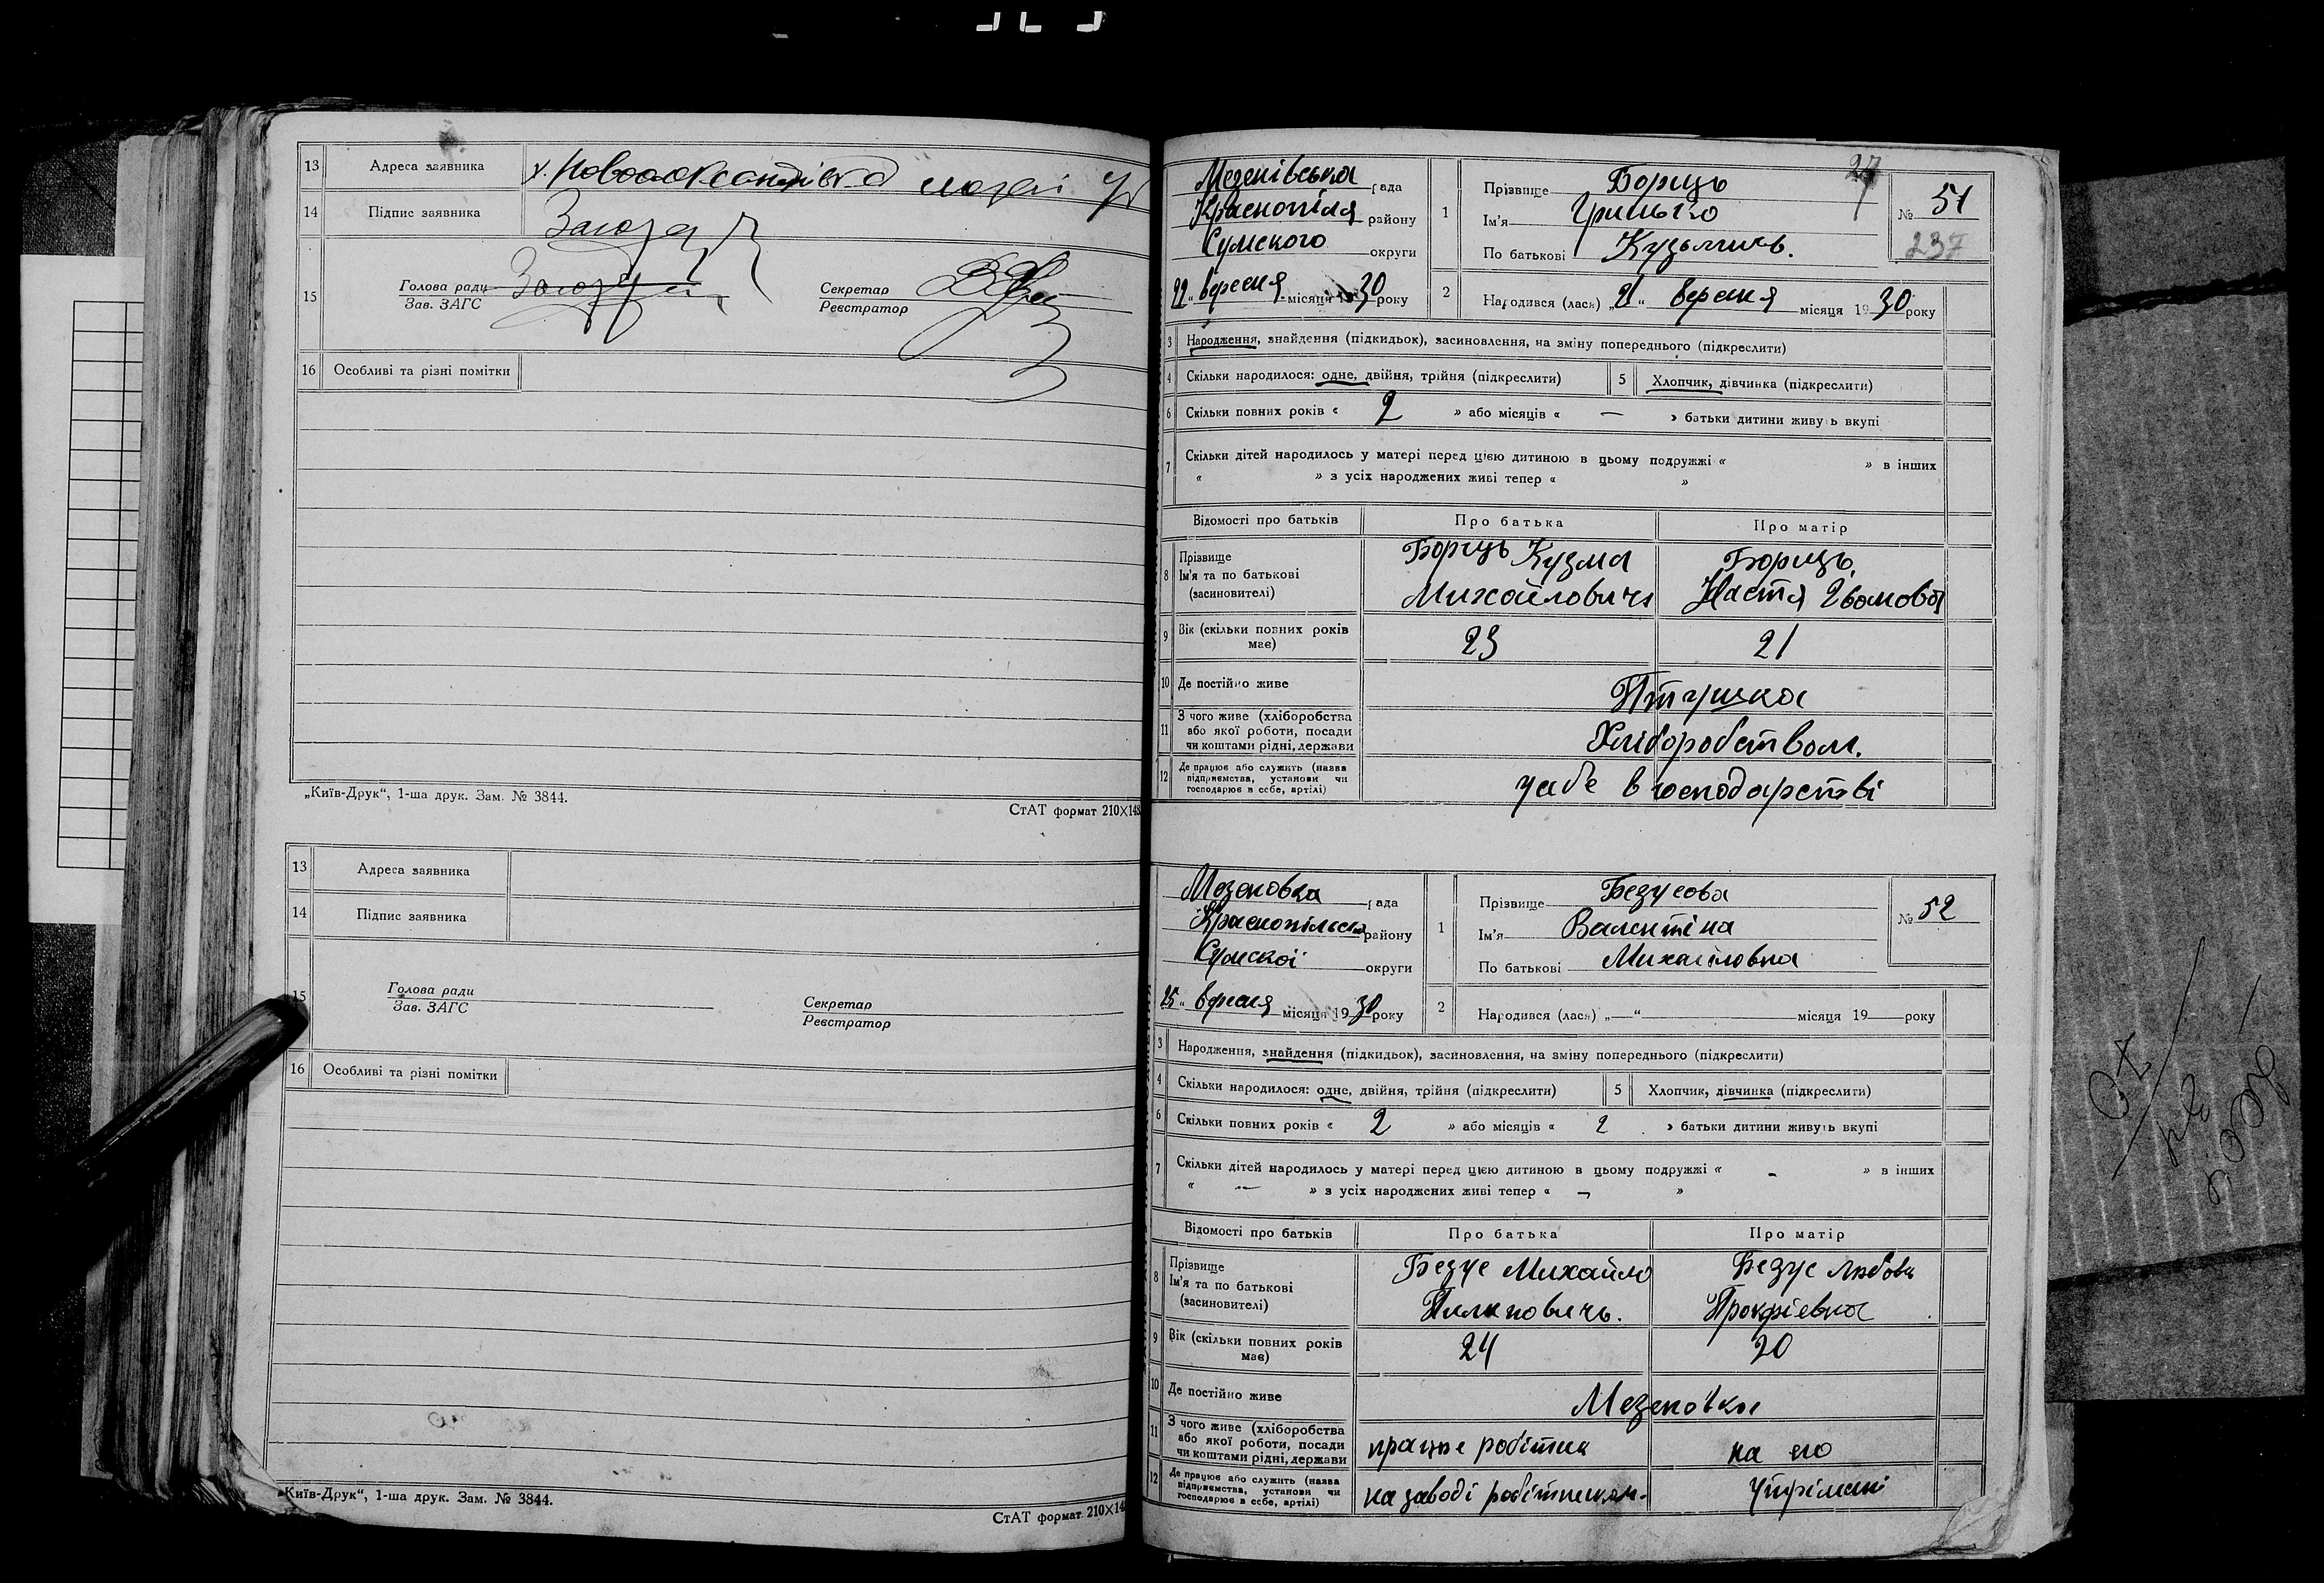 13 Адреса заявника х. Новоолександрівка
14 Підпис заявника
15 Голова ради Секретар
Зав. ЗАГС Реєстратор
16 Особливі та різні помітки
„Київ-Друк“, 1-ша друк. Зам. № 3844.
СтАТ формат 210X148
13 Адреса заявника
14 Підпис заявника
15 Голова ради Секретар
Зав. ЗАГС Реєстратор
16 Особливі та різні помітки
„Київ-Друк“, 1-ша друк. Зам. № 3844.
СтАТ формат 210X14
27
Мезенівська рада
Краснопілля району
Сумского округи
22 „ вересня місяця 1930 року
1 Прізвище Борищь
Ім'я Грицько
По батькові Кузьмичь.
№ 51
237
2 Народився (лася) „21“ вересня місяця 1930 року
3 Народження, знайдення (підкидьок), засиновлення, на зміну попереднього (підкреслити)
4 Скільки народилося: одне, двійня, трійня (підкреслити) 5 Хлопчик, дівчинка (підкреслити)
6 Скільки повних років « 2 » або місяців « — » батьки дитини живуть вкупі
7 Скільки дітей народилось у матері перед цією дитиною в цьому подружжі « » в інших
« » з усіх народжених живі тепер « »
Відомості про батьків Про батька Про матір
8 Прізвище
Ім'я та по батькові
(засиновителі)
Борищь Кузма
Михайловичь
Борищь
Настя
9 Вік (скільки повних років має) 23 21
10 Де постійно живе
11 З чого живе (хліборобства або якої роботи, посади чи коштами рідні, держави Хліборобством.
12 Де працює або служить (назва підприємства, установи чи господарює в себе, артілі) у себе в господарстві
Мезеновка рада
Краснопільск району
Сумскоі округи
25 „ вересня місяця 1930 року
1 Прізвище Безусова
Ім'я Валентіна
По батькові Михаіловна
№ 52
2 Народився (лася) „—“ місяця 19 — року
3 Народження, знайдення (підкидьок), засиновлення, на зміну попереднього (підкреслити)
4 Скільки народилося: одне, двійня, трійня (підкреслити) 5 Хлопчик, дівчинка (підкреслити)
6 Скільки повних років « 2 » або місяців « 2 » батьки дитини живуть вкупі
7 Скільки дітей народилось у матері перед цією дитиною в цьому подружжі « - » в інших
« — » з усіх народжених живі тепер « — »
Відомості про батьків Про батька Про матір
8 Прізвище
Ім'я та по батькові
(засиновителі)
Безус Михайло
Пилиповичь.
Безус Любовь
9 Вік (скільки повних років має) 24 20
10 Де постійно живе Мезеновка
11 З чого живе (хліборобства або якої роботи, посади чи коштами рідні, держави працює на его
12 Де працює або служить (назва підприємства, установи чи господарює в себе, артілі) на заводі робітником. утрімані